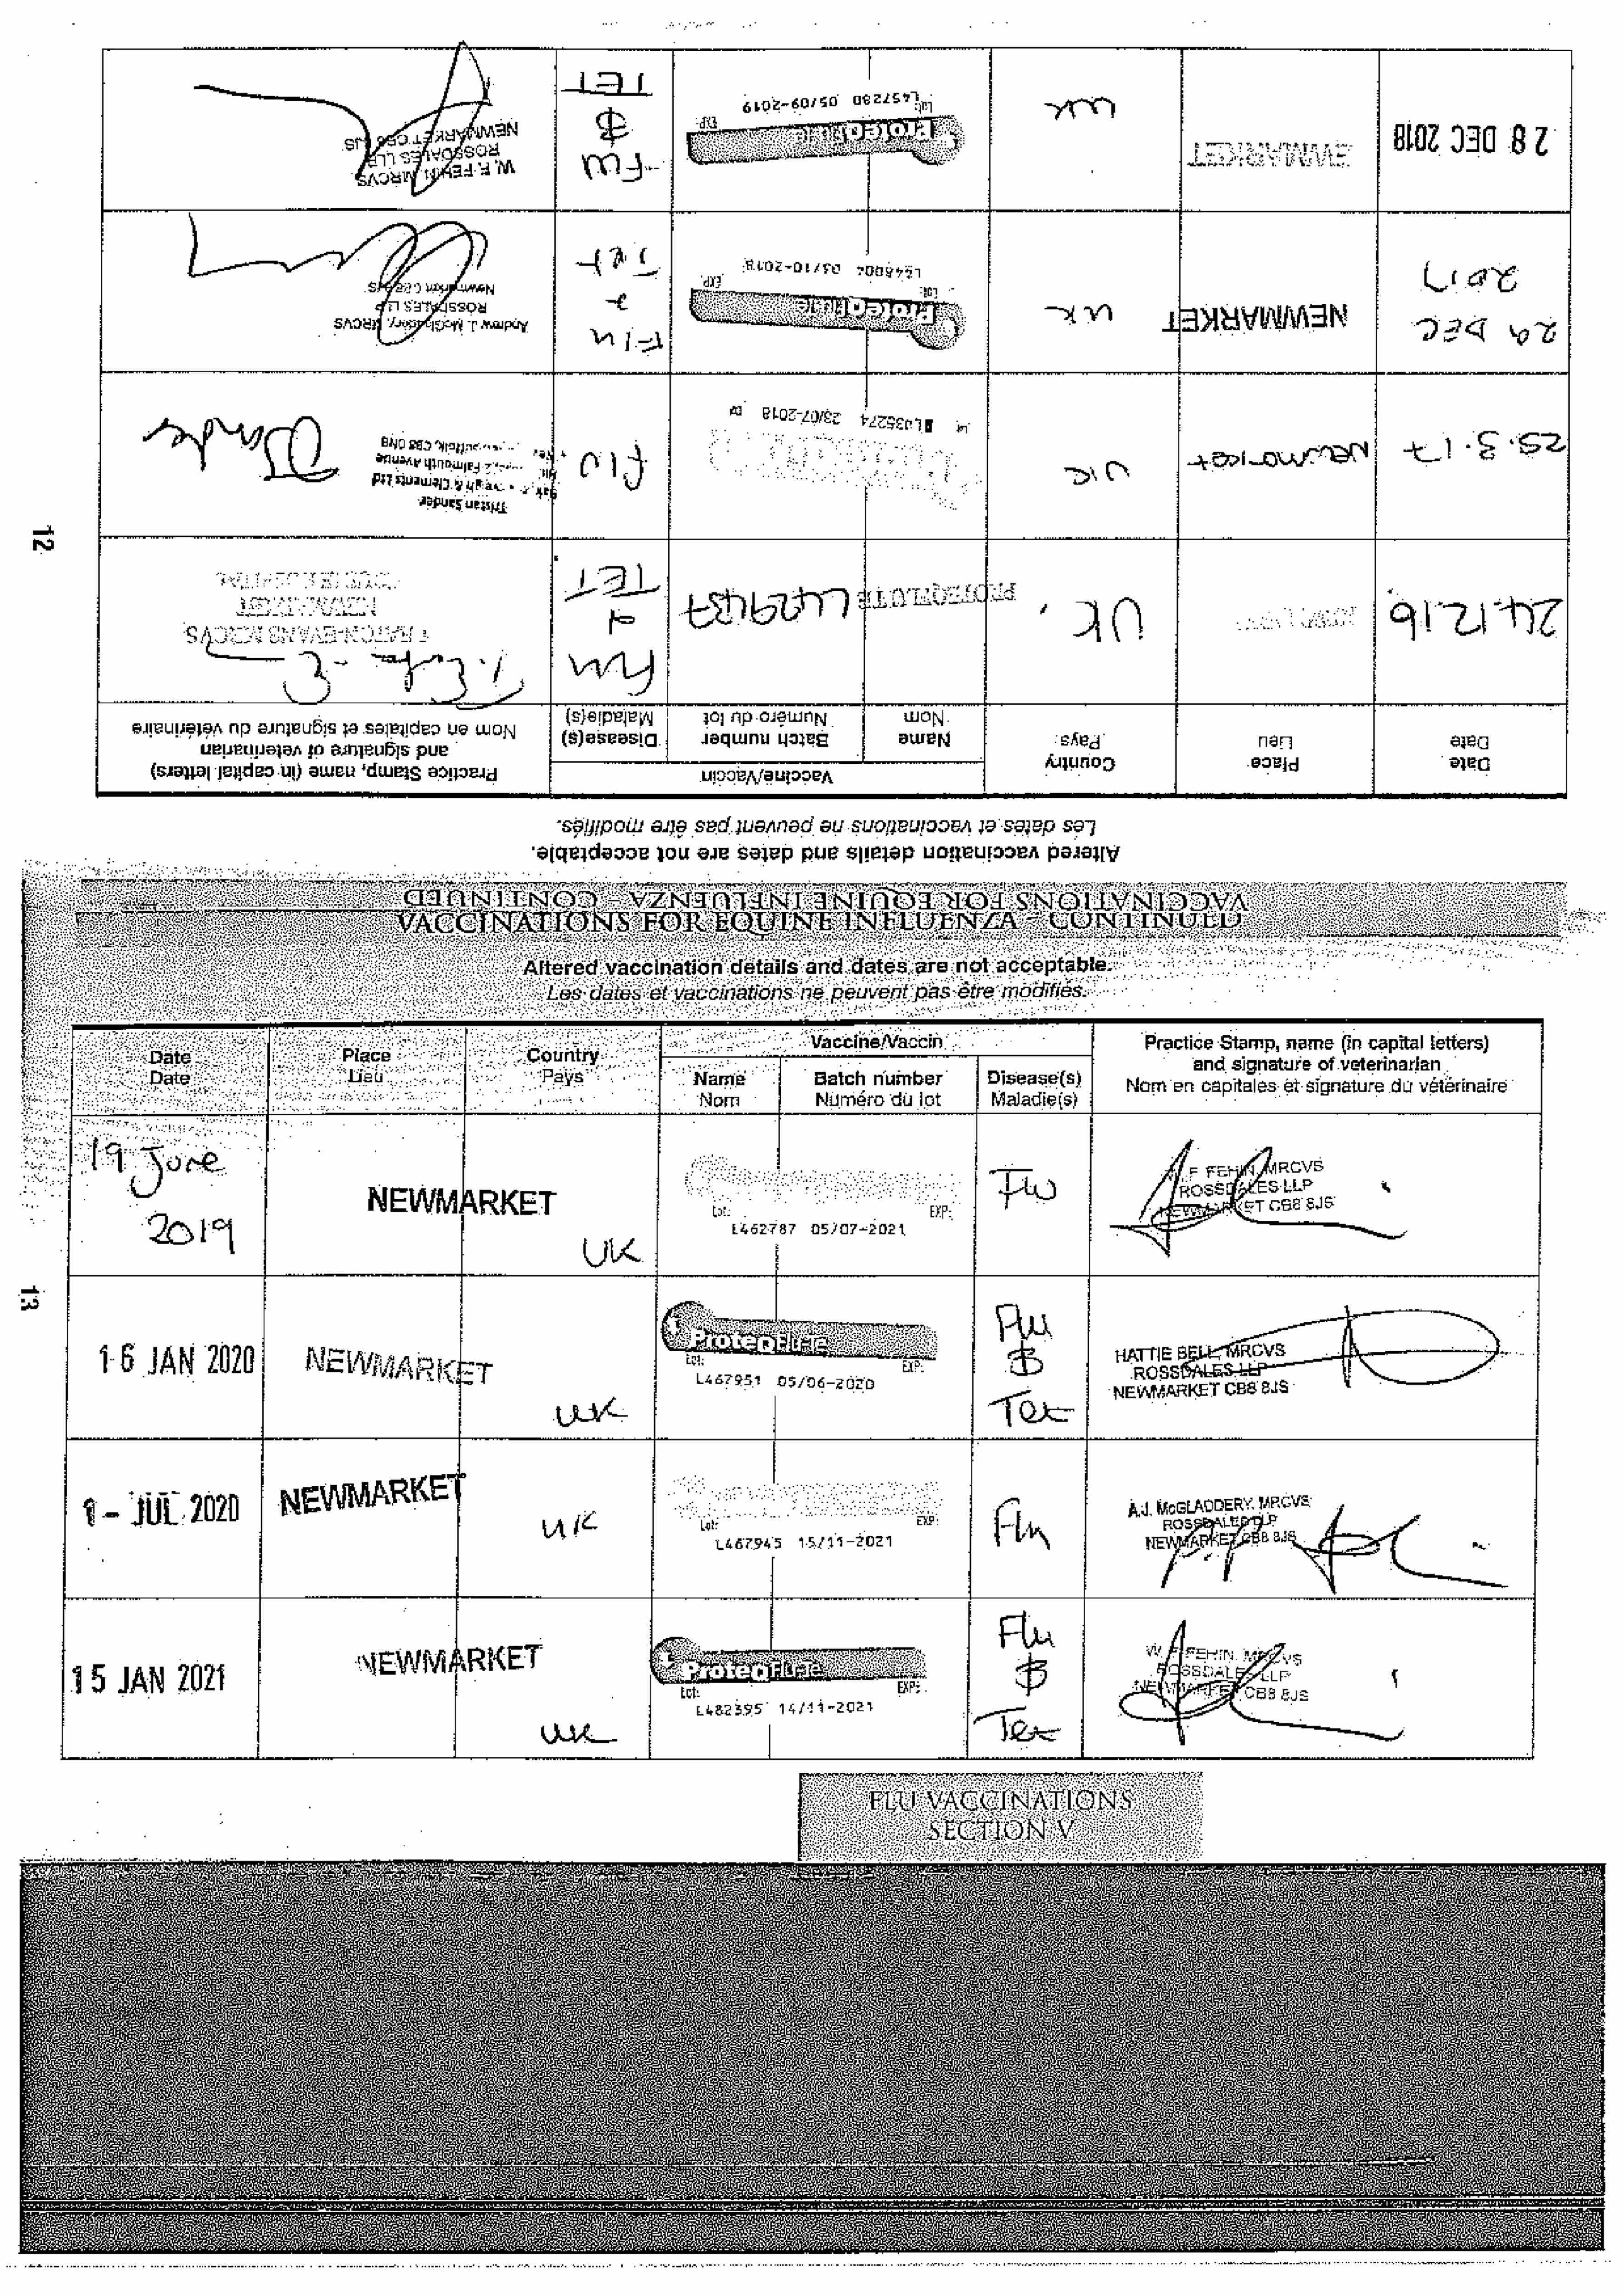 12
VACCINATIONS FOR EQUINE INFLUENZA – CONTINUED
Altered vaccination details and dates are not acceptable.
Les dates et vaccinations ne peuvent pas être modifiés.
Date
Date
Place
Lieu
Country
Pays
Vaccine/Vaccin
Name
Nom
Batch number
Numéro du lot
Disease(s)
Maladie(s)
Practice Stamp, name (in capital letters)
and signature of veterinarian
Nom en capitales et signature du vétérinaire
24.12.16
UK
PROTEQFLU TE
L429437
Flu
&
TET
NEWMARKET
25.3.17
Newmarket
UK
L435274 23/07-2018
Flu
Tristan Sander
Clements Ltd
Falmouth Avenue
Suffolk, CB8 0NB
29 DEC
2017
NEWMARKET
UK
ProteqFlu-Te
Lot: EXP:
L448004 03/10-2018
Flu
&
Tet
Andrew J. McGladdery, MRCVS
ROSSDALES LLP
Newmarket CB8 8JS
28 DEC 2018
EWMARKET
UK
ProteqFlu-Te
Lot: EXP:
L457280 05/09-2019
FLU
&
TET
W. F. FEHIN, MRCVS
ROSSDALES LLP
NEWMARKET CB8 8JS
13
VACCINATIONS FOR EQUINE INFLUENZA – CONTINUED
Altered vaccination details and dates are not acceptable.
Les dates et vaccinations ne peuvent pas être modifiés.
Date
Date
Place
Lieu
Country
Pays
Vaccine/Vaccin
Name
Nom
Batch number
Numéro du lot
Disease(s)
Maladie(s)
Practice Stamp, name (in capital letters)
and signature of veterinarian
Nom en capitales et signature du vétérinaire
19 June
2019
NEWMARKET
UK
Lot: EXP:
L462787 05/07-2021
Flu
W. F. FEHIN, MRCVS
ROSSDALES LLP
NEWMARKET CB8 8JS
16 JAN 2020
NEWMARKET
UK
ProteqFlu-Te
Lot: EXP:
L467951 05/06-2020
Flu
&
Tet
HATTIE BELL, MRCVS
ROSSDALES LLP
NEWMARKET CB8 8JS
1 - JUL 2020
NEWMARKET
UK
Lot: EXP:
L467945 15/11-2021
Flu
A.J. McGLADDERY, MRCVS
ROSSDALES LLP
NEWMARKET CB8 8JS
pp
15 JAN 2021
NEWMARKET
UK
ProteqFlu-Te
Lot: EXP:
L482395 14/11-2021
Flu
&
Tet
W. F. FEHIN, MRCVS
ROSSDALES LLP
NEWMARKET CB8 8JS
FLU VACCINATIONS
SECTION V